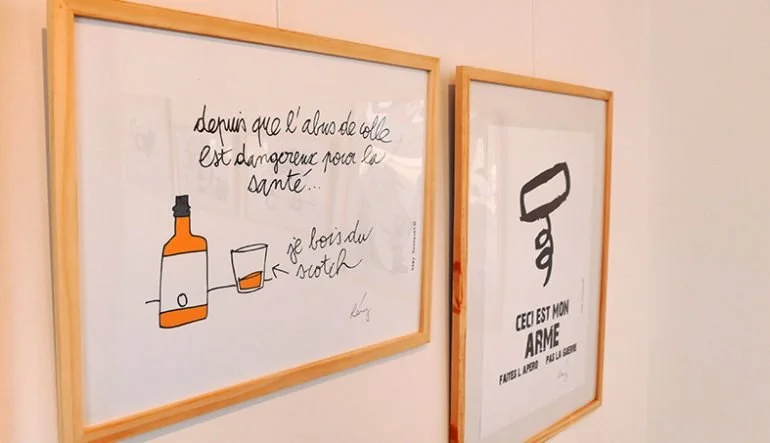 depuis que l'abus de colle
est dangereux pour la
santé...
je bois du
scotch
CECI EST MON
ARME
FAITES L APERO PAS LA GUERRE